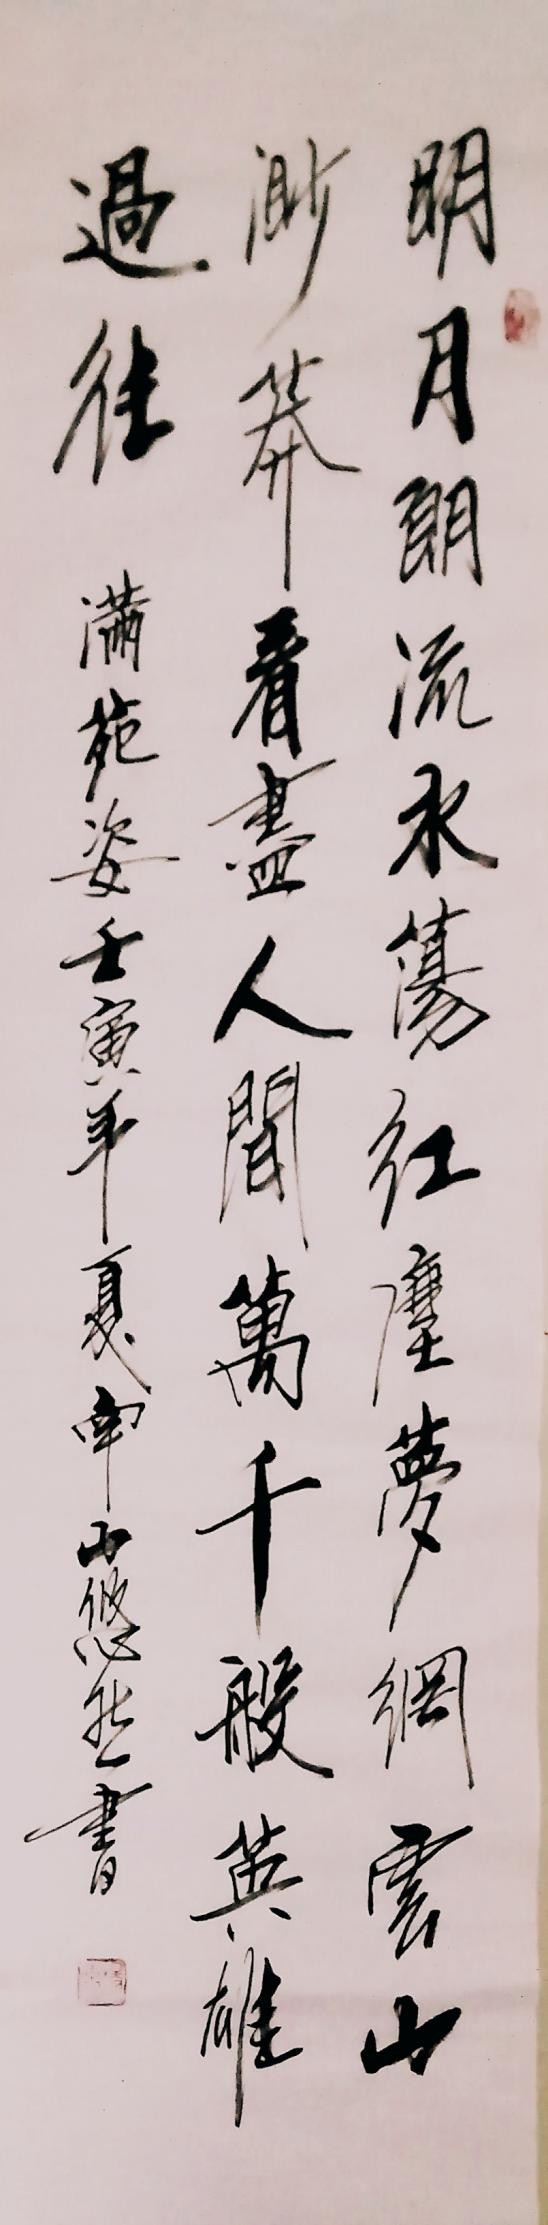 明月朗流水蕩红塵夢網雲山
渺莽看盡人間萬千般英雄
過往 滿苑姿壬寅年夏南山悠然書